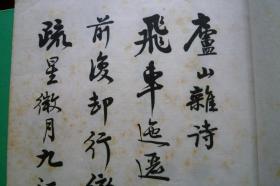 廬山雜诗
飛車迤
前後却行
疏星微月九